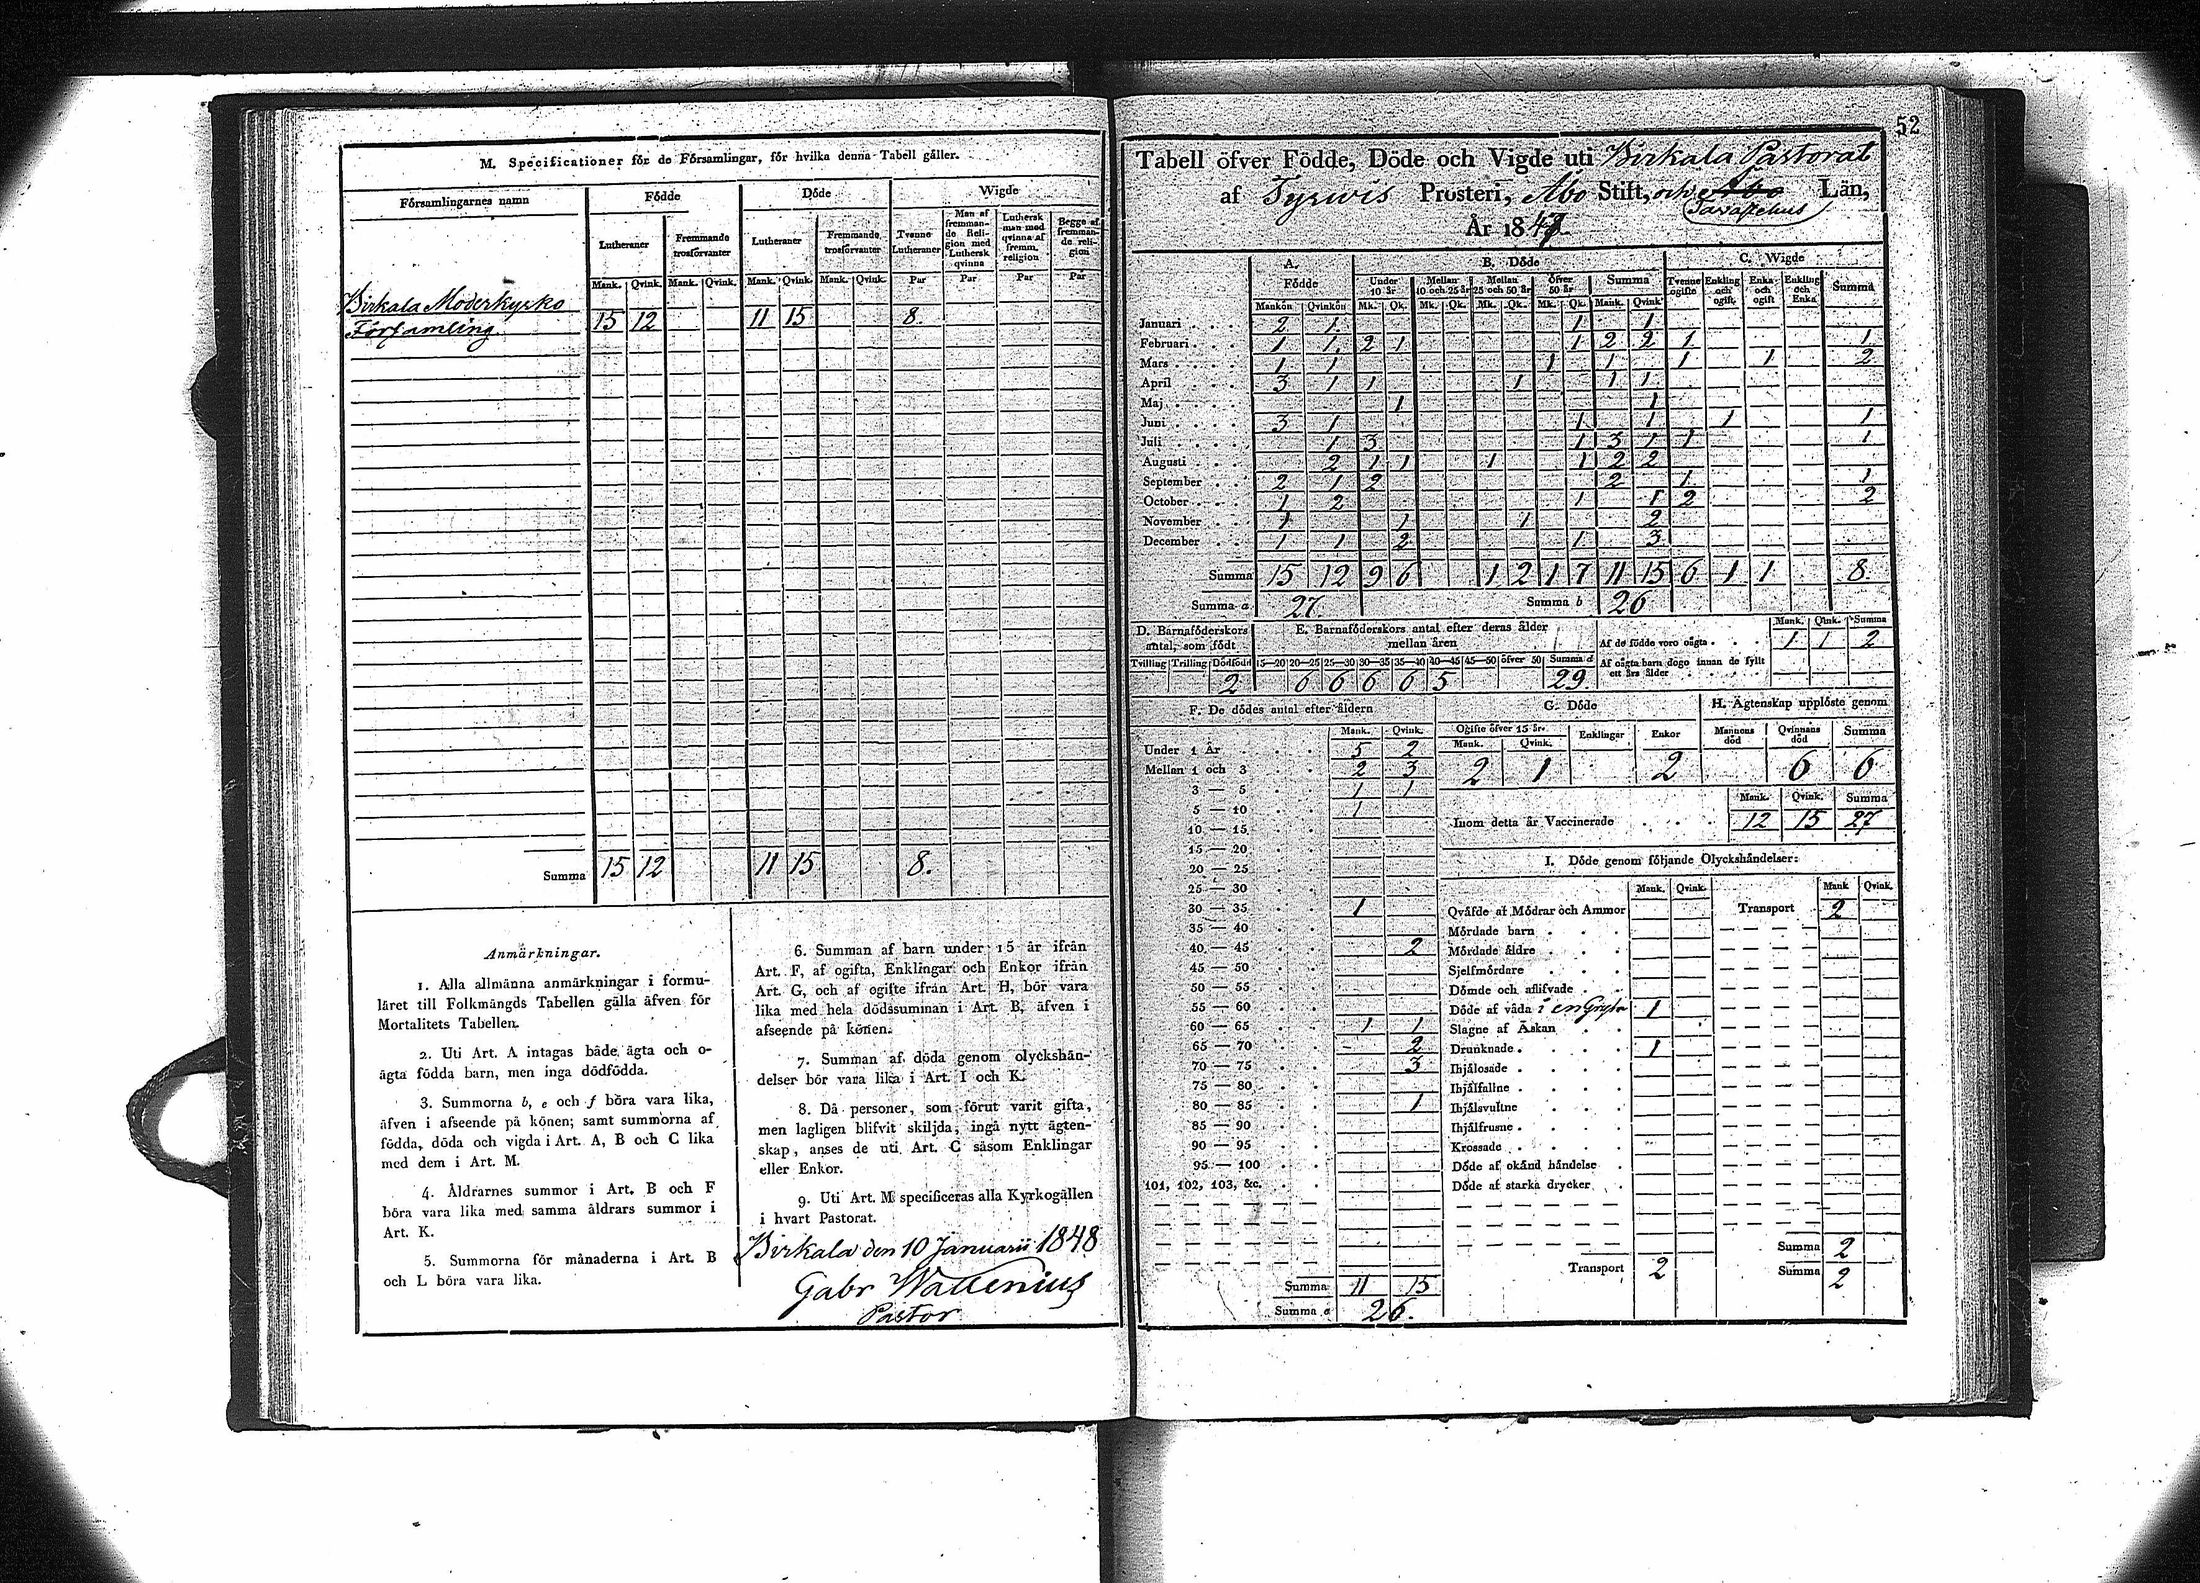 M. Specificationer för de Församlingar, för hvilka denna Tabell gäller.
Församlingarnes namn Födde Döde Wigde
Lutheraner Fremmande trosförvanter Lutheraner Fremmande trosförvanter Tvenne Lutheraner Man af fremmande Religion med Luthersk qvinna Luthersk man med qvinna af fremm. religion Begge af fremmande religion
Mank. Qvink. Mank. Qvink. Mank. Qvink. Mank. Qvink. Par Par Par Par
Birkala Moderkyrko
Församling 15 12 11 15 8.
Summa 15 12 11 15 8.
Anmärkningar.
1. Alla allmänna anmärkningar i formu-
läret till Folkmängds Tabellen gälla äfven för
Mortalitets Tabellen.
2. Uti Art. A intagas både ägta och o-
ägta födda barn, men inga dödfödda.
3. Summorna b, e och f böra vara lika,
äfven i afseende på könen; samt summorna af
födda, döda och vigda i Art. A, B och C lika
med dem i Art. M.
4. Åldrarnes summor i Art. B och F
böra vara lika med samma åldrars summor i
Art. K.
5. Summorna för månaderna i Art. B
och L böra vara lika.
6. Summan af barn under 15 år ifrån
Art. F, af ogifta, Enklingar och Enkor ifrån
Art. G, och af ogifte ifrån Art. H, bör vara
lika med hela dödssumman i Art. B, äfven i
afseende på könen.
7. Summan af döda genom olyckshän-
delser bör vara lika i Art. I och K.
8. Då personer, som förut varit gifta,
men lagligen blifvit skiljda, ingå nytt ägten-
skap, anses de uti Art. C såsom Enklingar
eller Enkor.
9. Uti Art. M specificeras alla Kyrkogällen
i hvart Pastorat.
Birkala den 10 Januarii 1848
Gabr Wallenius
Pastor
52
Tabell öfver Födde, Döde och Vigde uti Birkala Pastorat
af Tyrwis Prosteri, Åbo Stift, och Åbo Län,
Tavastehus
År 1847
A. Födde B. Döde C. Wigde
Under 10 år Mellan 10 och 25 år Mellan 25 och 50 år Öfver 50 år Summa Tvenne ogifte Enkling och ogift Enka och ogift Enkling och Enka Summa
Mankön Qvinkön Mk. Qk. Mk. Qk. Mk. Qk. Mk. Qk. Mank. Qvink.
Januari 2 1 1 1
Februari 1 1 2 1 1 2 2 1 1
Mars 1 1 1 1 1 1 2
April 3 1 1 1 1 1
Maj 1 1
Juni 3 1 1 1 1 1
Juli 1 3 1 3 1 1 1
Augusti 2 1 1 1 1 2 2
September 2 1 2 2 1 1
October 1 2 1 1 2 2
November 1 1 1 2
December 1 1 2 1 3
Summa 15 12 9 6 1 2 1 7 11 15 6 1 1 8
Summa a 27 Summa b 26
D. Barnaföderskors antal, som födt
Tvilling Trilling Dödfödd
2
E. Barnaföderskors antal efter deras ålder
mellan åren
15—20 20—25 25—30 30—35 35—40 40—45 45—50 öfver 50 Summa d
6 6 6 6 5 29.
Mank. Qink. Summa
Af de födde voro oägta 1 1 2
Af oägta barn dögo innan de fyllt
ett års ålder
F. De dödes antal efter åldern
Mank. Qvink.
Under 1 År 5 2
Mellan 1 och 3 2 3
3 — 5 1 1
5 — 10 1
10 — 15
15 — 20
20 — 25
25 — 30
30 — 35 1
35 — 40
40 — 45 2
45 — 50
50 — 55
55 — 60
60 — 65 1 1
65 — 70 2
70 — 75 3
75 — 80
80 — 85 1
85 — 90
90 — 95
95 — 100
101, 102, 103, &c.
Summa 11 15
Summa e 26.
G. Döde
Ogifte öfver 15 år. Enklingar Enkor
Mank. Qvink.
2 1 2
H. Ägtenskap upplöste genom
Mannens död Qvinnans död Summa
6 6
Mank. Qvink. Summa
Inom detta år Vaccinerade 12 15 27
I. Döde genom följande Olyckshändelser:
Mank. Qvink. Mank Qvink.
Qväfde af Mödrar och Ammor Transport 2
Mördade barn
Mördade äldre
Sjelfmördare
Dömde och aflifvade
Döde af våda i en Gryta 1
Slagne af Åskan
Drunknade 1
Ihjälosade
Ihjälfallne
Ihjälsvultne
Ihjälfrusne
Krossade
Döde af okänd händelse
Döde af starka drycker
Summa 2
Transport 2 Summa 2